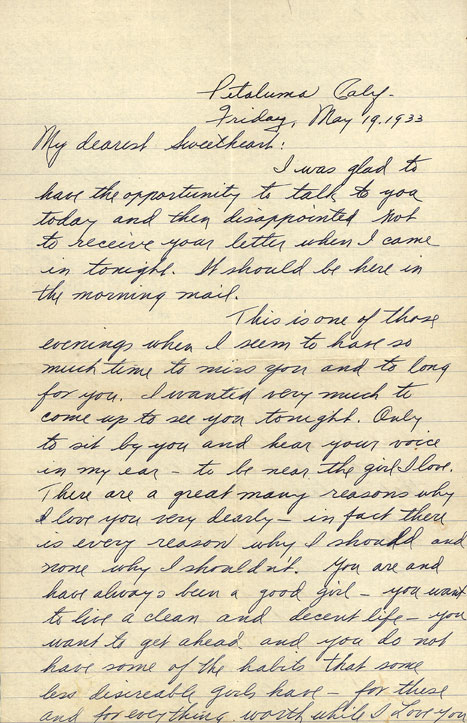 Petaluma Calif.
Friday, May 19, 1933
My dearest Sweetheart:
I was glad to
have the opportunity to talk to you
today and then disappointed not
to receive your letter when I came
in tonight. It should be here in
the morning mail.
This is one of those
evenings when I seem to have so
much time to miss you and to long
for you. I wanted very much to
come up to see you tonight. Only
to sit by you and hear your voice
in my ear – to be near the girl I love.
There are a great many reasons why
I love you very dearly – in fact there
is every reason why I should and
none why I shouldn't. You are and
have always been a good girl – you want
to live a clean and decent life – you
want to get ahead and you do not
have some of the habits that some
less discreable girls have – for these
and for everything worth while I Love you